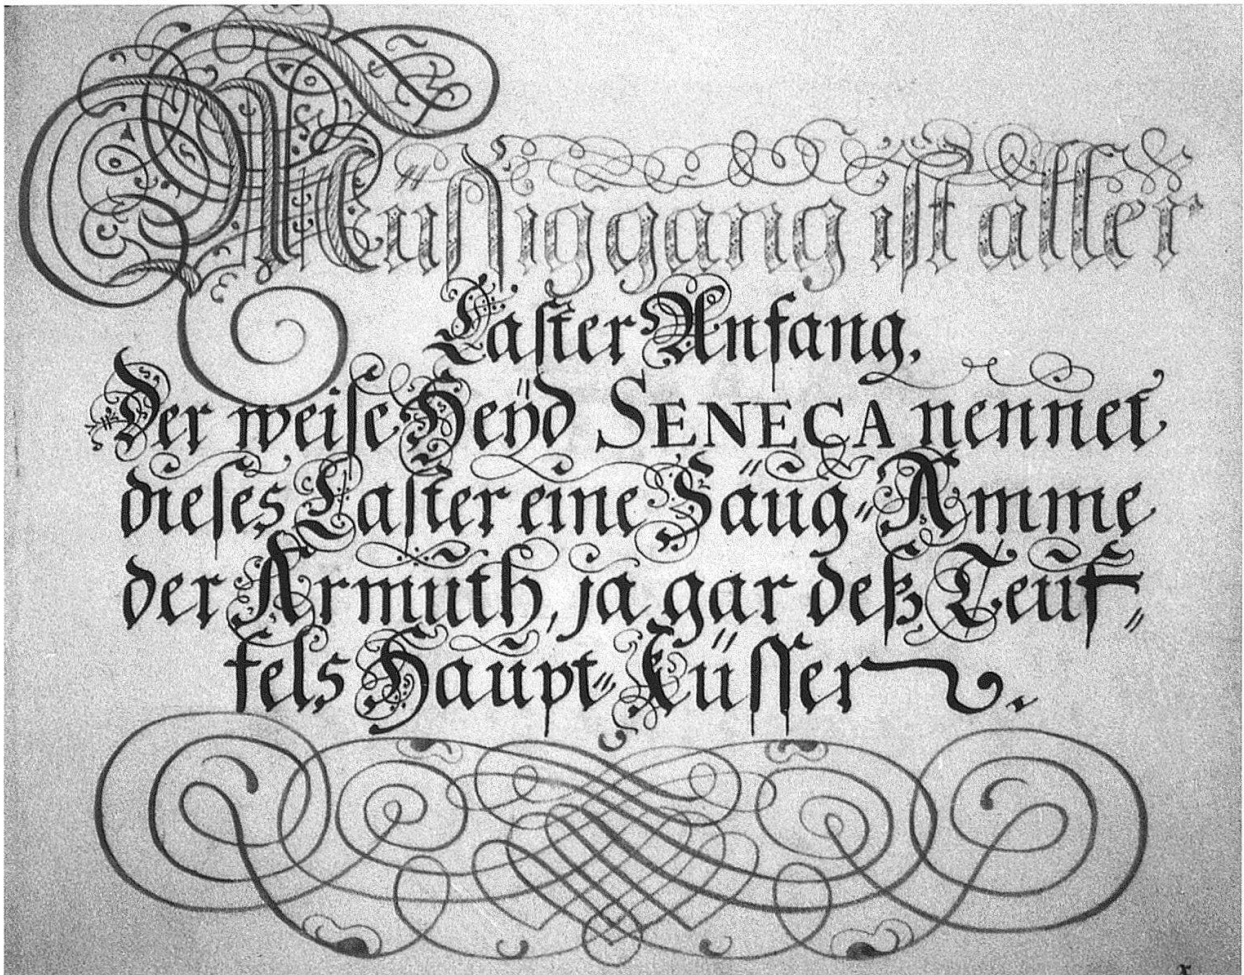 Müßiggang ist aller
Laster Anfang.
Der weise Heÿd SENECA nennet
dieses Laster eine Säug=Amme
der Armuth, ja gar deß Teuf=
fels Haupt=Küsser.